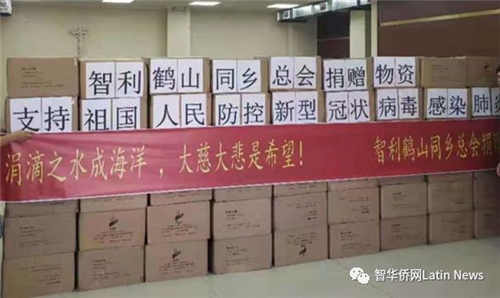 智利鹤山同乡总会捐赠物资
支持祖国人民防控新型冠状病毒感染肺
涓滴之水成海洋，大慈大悲是希望！ 智利鹤山同乡总会捐
智华侨网Latin News